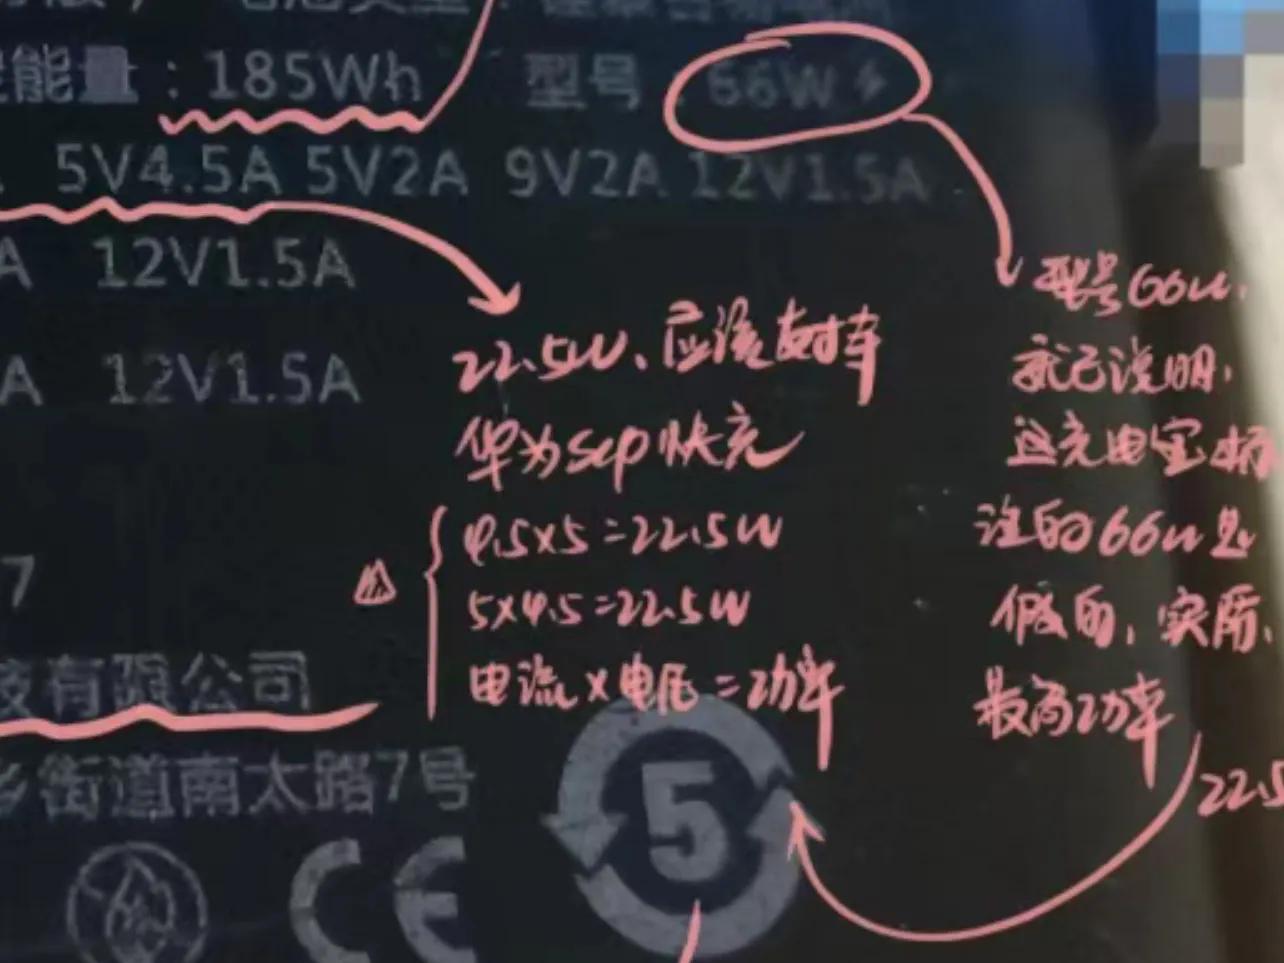 能量：185Wh 型号：66W
5V4.5A 5V2A 9V2A 12V1.5A
A 12V1.5A
A 12V1.5A
7
技有限公司
乡街道南太路7号
CE
5
22.5W、应该支持车
华为scp快充
4.5×5=22.5W
5×4.5=22.5W
电流×电压=功率
型号66W,
就已说明,
这充电宝标
注的66W是
假的,实际,
最高功率
22.5